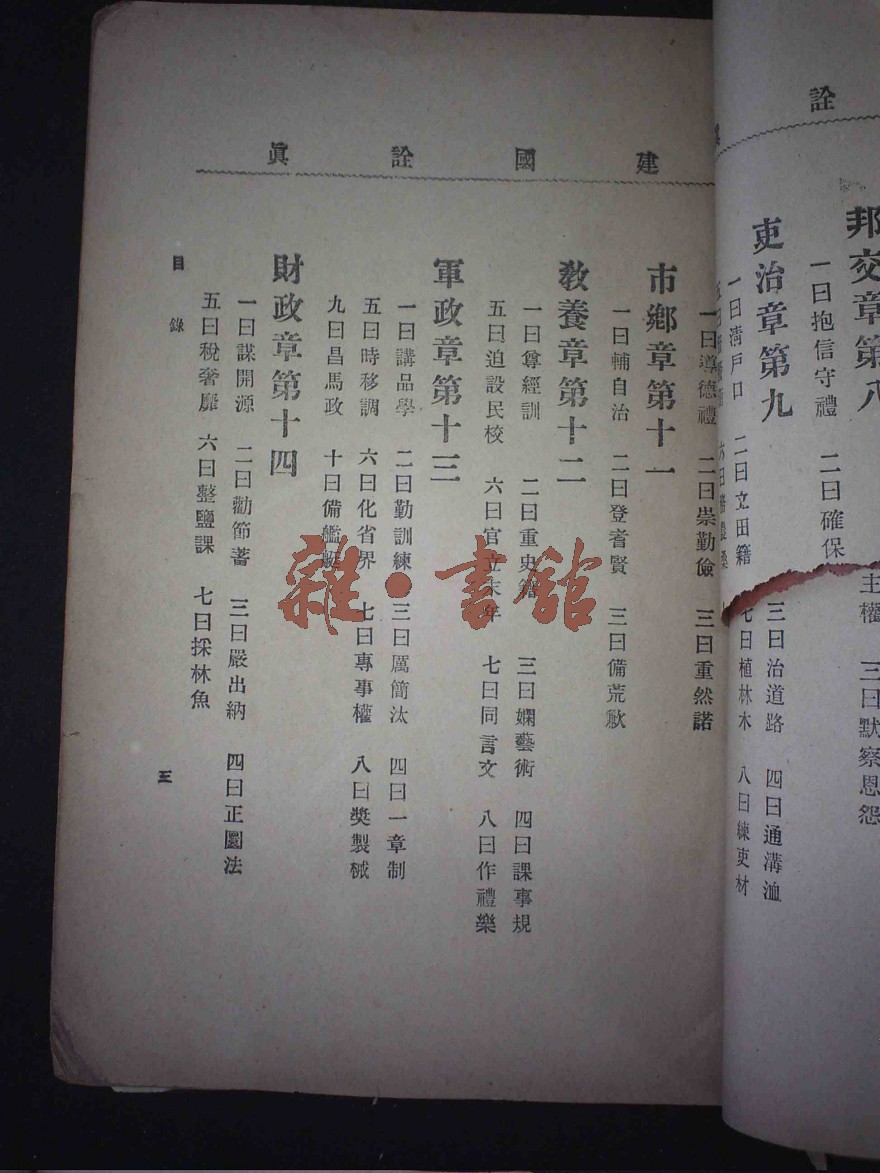 詮
邦交章第八
一曰抱信守禮 二曰確保主權 三曰默察恩怨
吏治章第九
一曰清戶口 二曰立田籍 三曰治道路 四曰通溝洫
七曰植林木 八曰練吏材
建國詮眞
一曰導德禮 二曰崇勤儉 三曰重然諾
市鄉章第十一
一曰輔自治 二曰登耆賢 三曰備荒歉
敎養章第十二
一曰尊經訓 二曰重史籍 三曰嫻藝術 四曰課事規
五曰迫設民校 六曰官立末年 七曰同言文 八曰作禮樂
軍政章第十三
一曰講品學 二曰勤訓練 三曰厲簡汰 四曰一章制
五曰時移調 六曰化省界 七曰專事權 八曰獎製械
九曰昌馬政 十曰備艦艇
財政章第十四
一曰謀開源 二曰勸節蓄 三曰嚴出納 四曰正圜法
五曰稅奢靡 六曰整鹽課 七曰採林魚
目錄
三
雜·書館